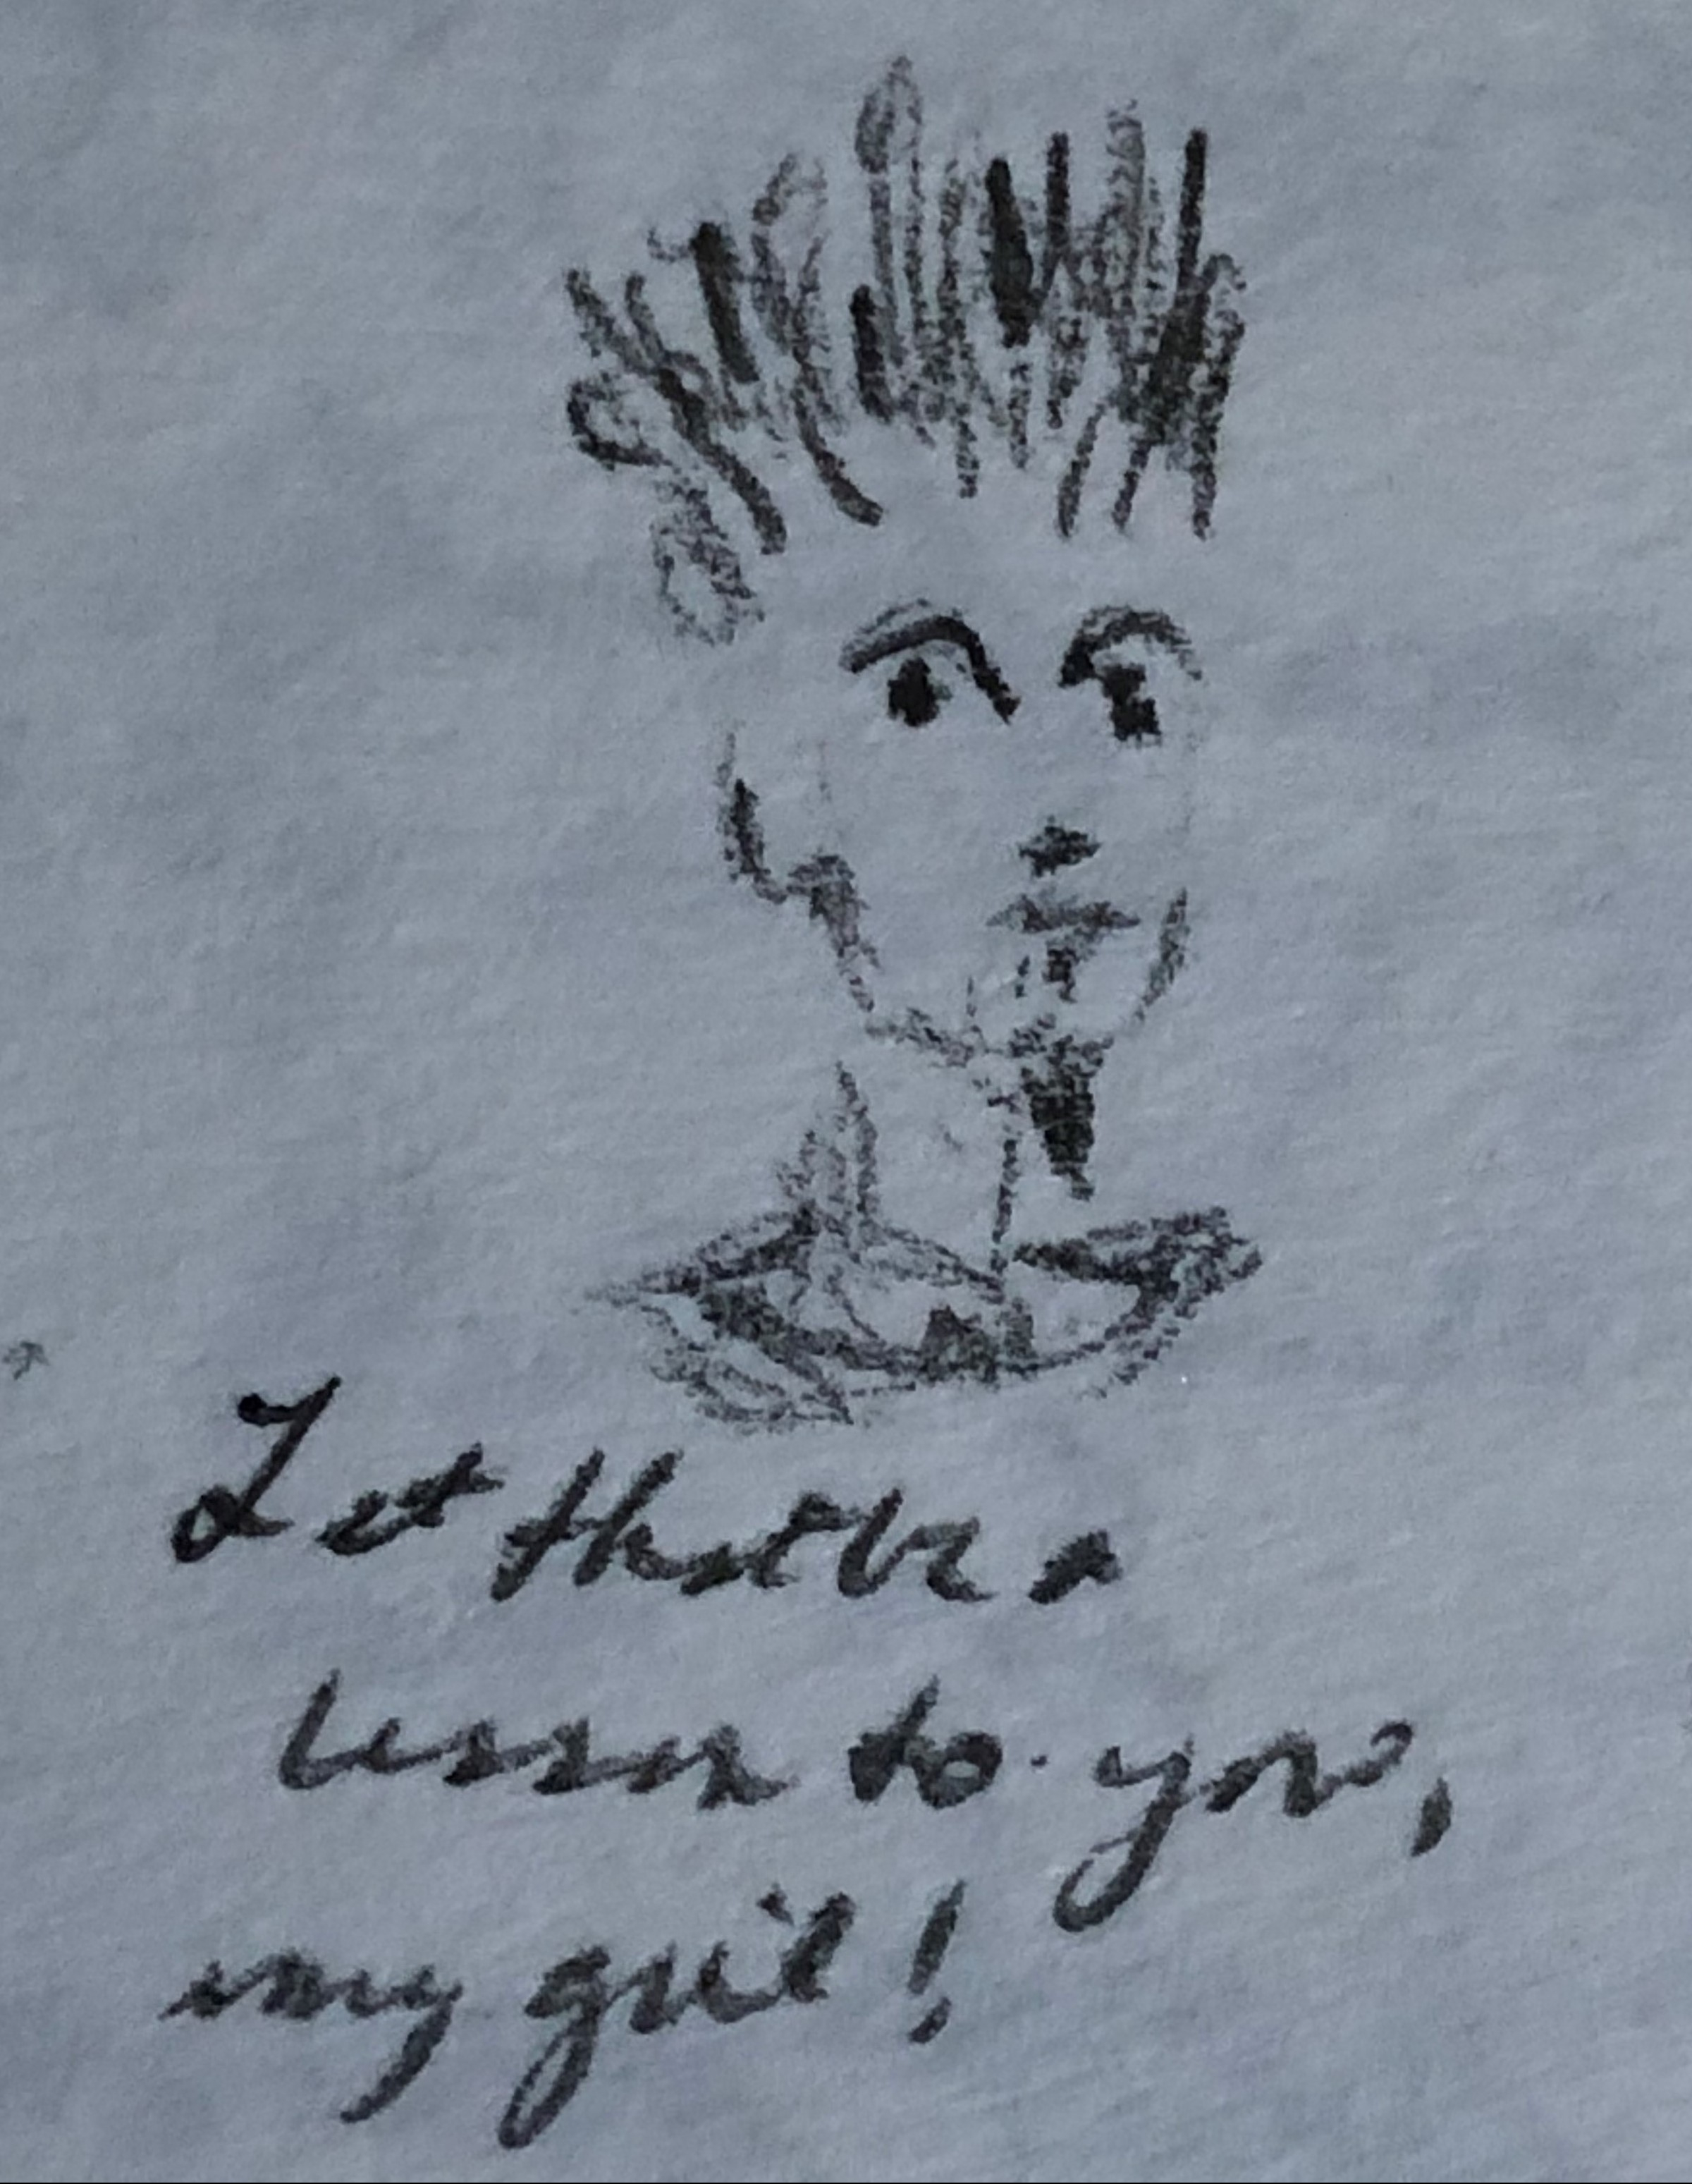 Let that be a
lesson to you,
my girl!